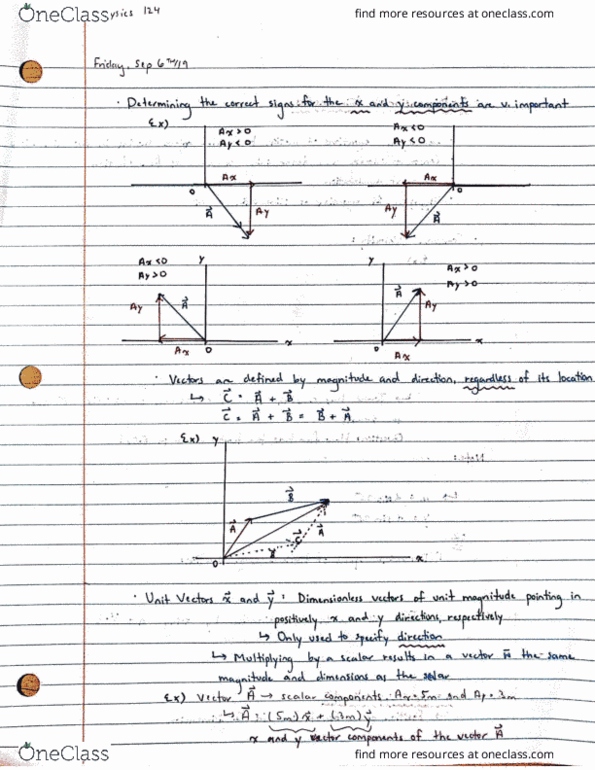 OneClass
ysics 124
find more resources at oneclass.com
Friday, Sep 6th/19
· Determining the correct signs for the x and y components are v. important
Ex)
Ax>0
Ay<0
Ax<0
Ay<0
Ax
0
Ay
A⃗
Ax
0
Ay
A⃗
Ax<0
Ay>0
y
y
Ax>0
Ay>0
Ay
A⃗
A⃗
Ay
Ax
0
x
0
Ax
x
· Vectors are defined by magnitude and direction, regardless of its location
↳ C⃗ = A⃗ + B⃗
C⃗ = A⃗ + B⃗ = B⃗ + A⃗
Ex) y
B⃗
A⃗
C⃗
A⃗
B⃗
0
x
· Unit Vectors x⃗ and y⃗ : Dimensionless vectors of unit magnitude pointing in
positively x and y directions, respectively
↳ Only used to specify direction
↳ Multiplying by a scalar results in a vector the same
magnitude and dimensions as the
Ex) Vector A⃗ → scalar components Ax = 5m and Ay = 3m
↳ A⃗ = (5m)x⃗ + (3m)y⃗
x and y vector components of the vector A⃗
OneClass
find more resources at oneclass.com